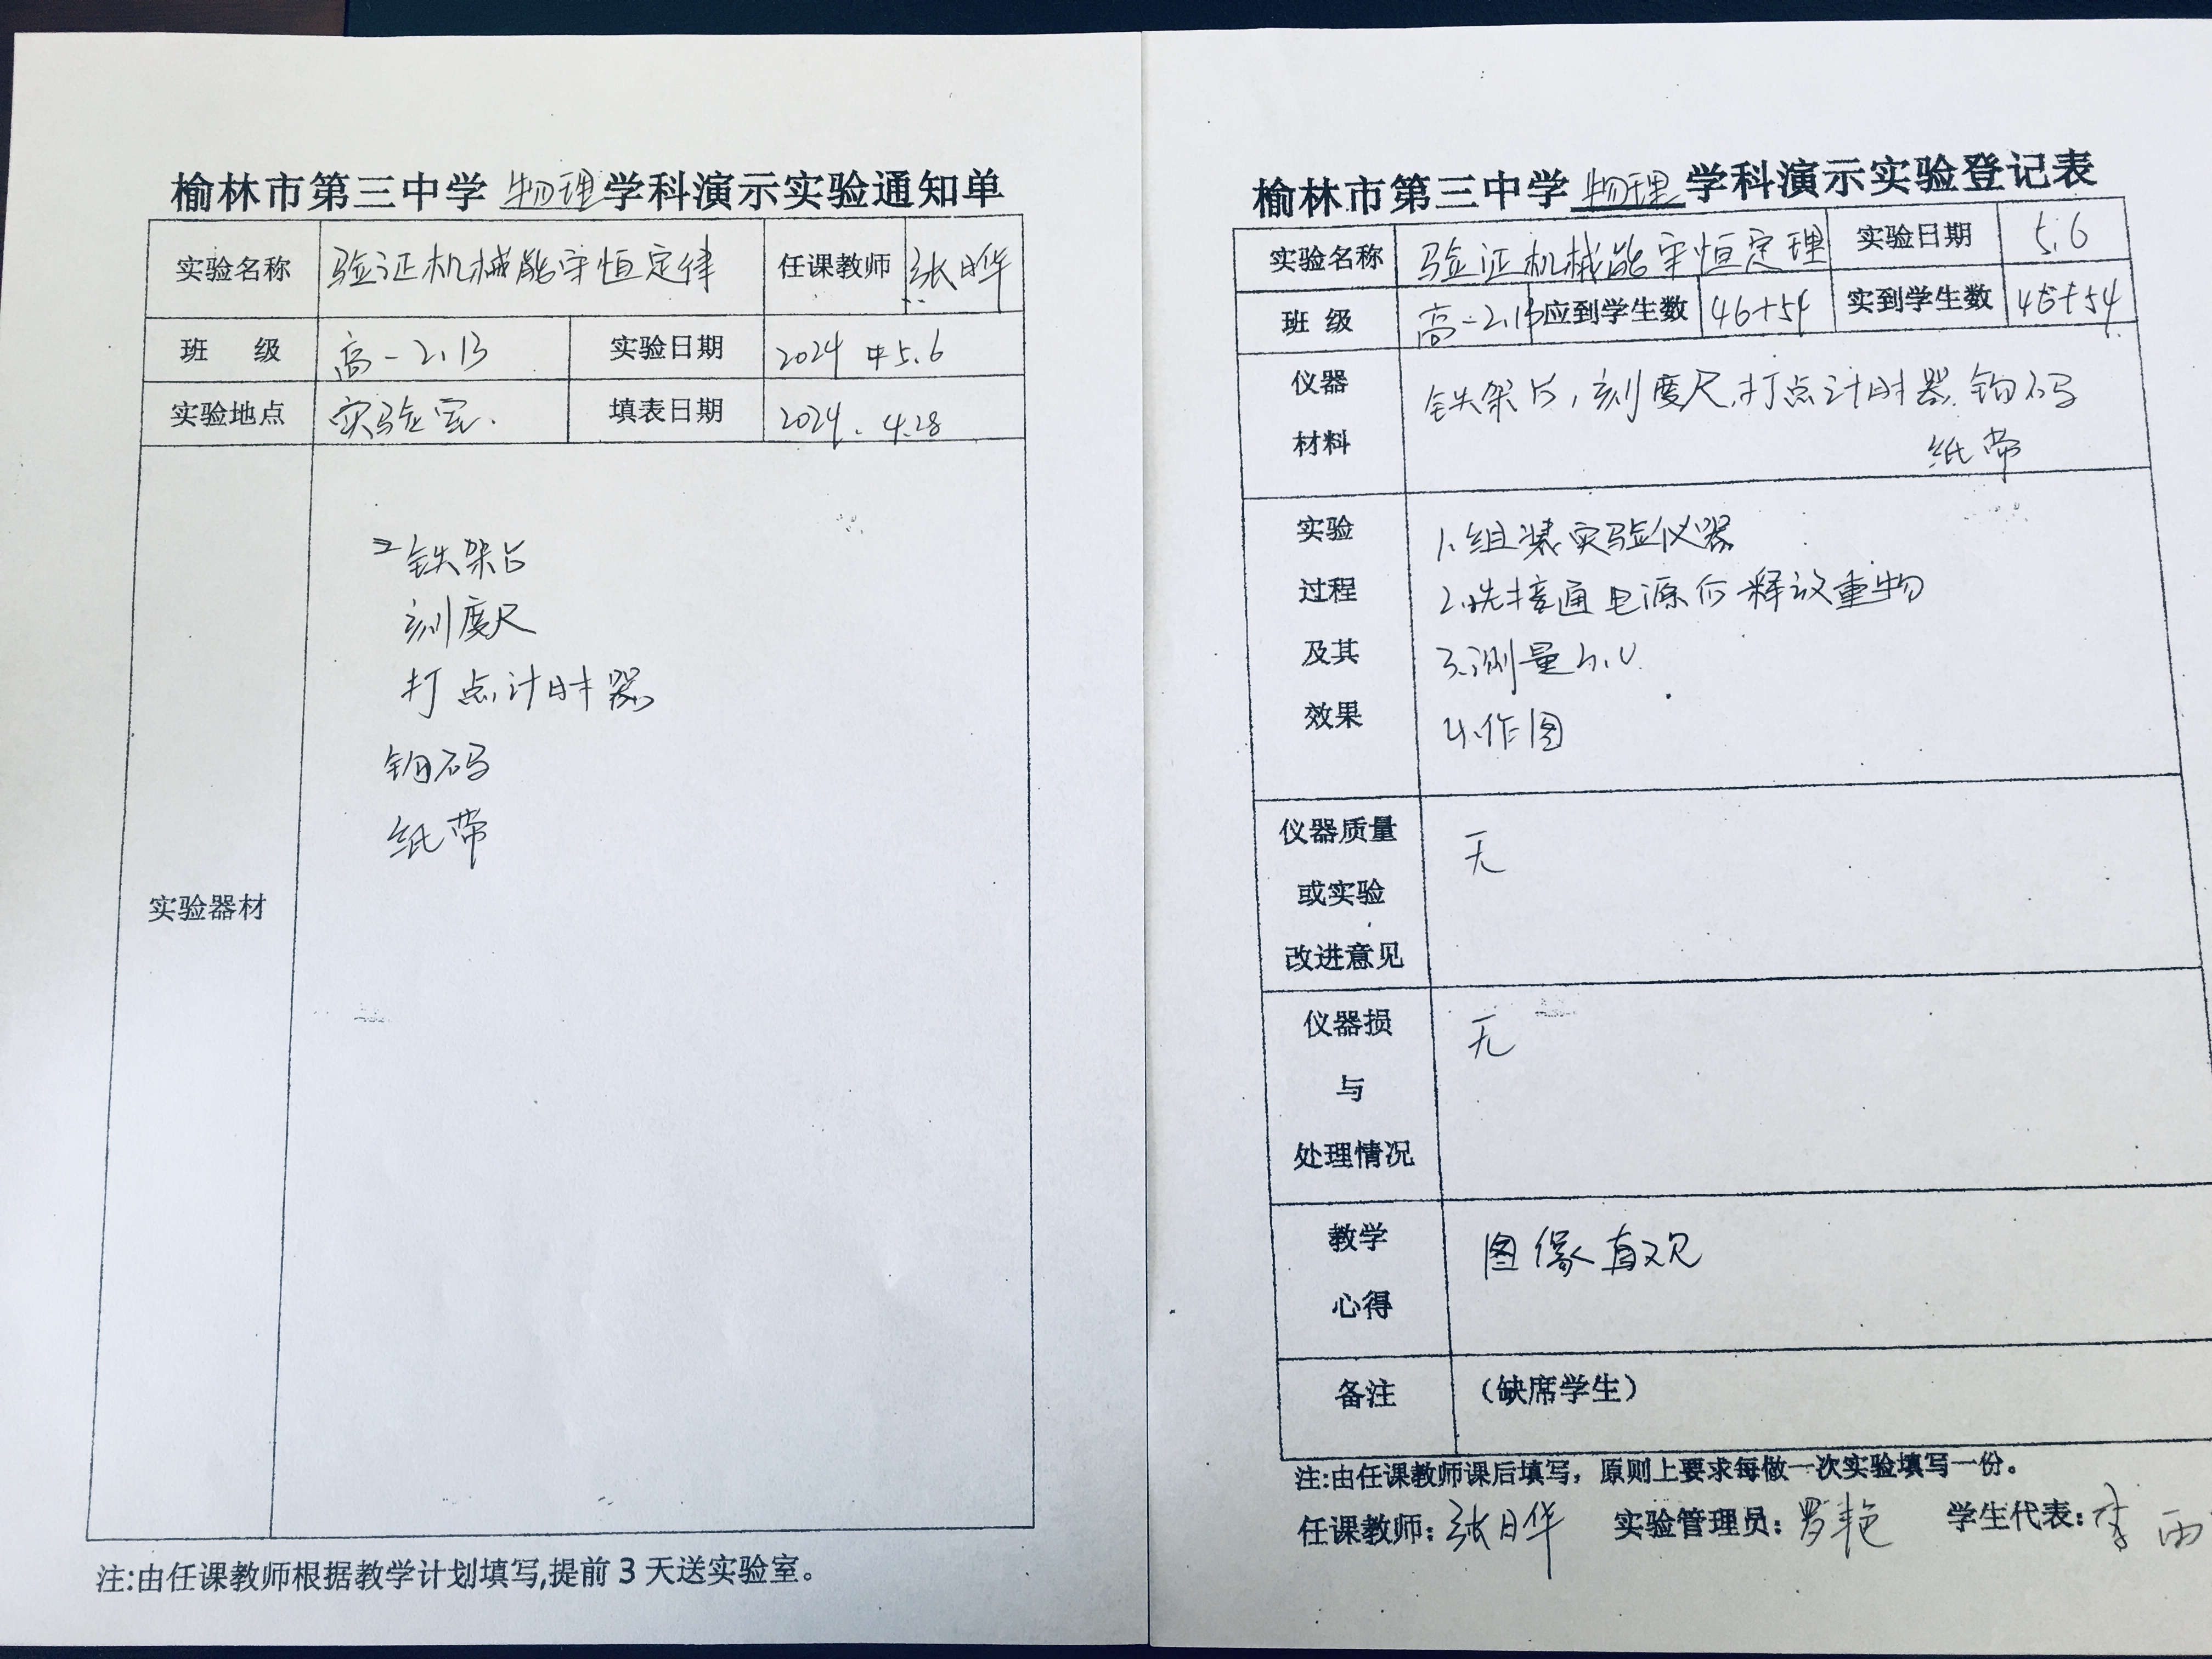 榆林市第三中学 物理 学科演示实验通知单
实验名称 验证机械能守恒定律 任课教师 张日华
班 级 高一2.13 实验日期 2024年5.6
实验地点 实验室. 填表日期 2024.4.28
实验器材
铁架台
刻度尺
打点计时器
钩码
纸带
注:由任课教师根据教学计划填写,提前3天送实验室。
榆林市第三中学 物理 学科演示实验登记表
实验名称 验证机械能守恒定理 实验日期 5.6
班 级 高一2.13 应到学生数 46+54 实到学生数 46+54
仪器材料 铁架台,刻度尺,打点计时器.钩码
纸带
实验过程及其效果
1.组装实验仪器
2.先接通电源后释放重物
3.测量h.v.
4.作图
仪器质量或实验改进意见 无
仪器损与处理情况 无
教学心得 图像直观
备注 (缺席学生)
注:由任课教师课后填写,原则上要求每做一次实验填写一份。
任课教师:张日华 实验管理员:罗艳 学生代表:李雨